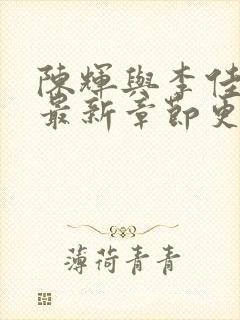 陳輝與李佳
最新章節更
薄荷青青